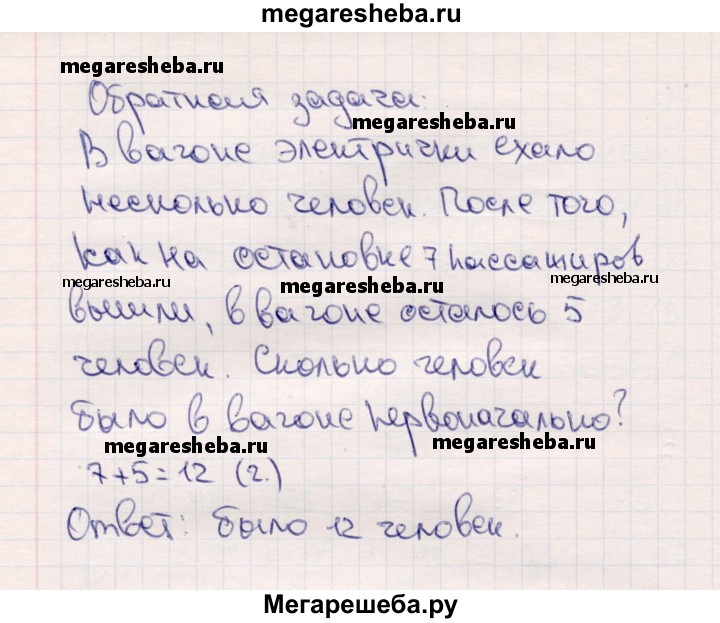 megaresheba.ru
megaresheba.ru
Обратная задача:
megaresheba.ru
В вагоне электрички ехало
несколько человек. После того,
как на остановке 7 пассажиров
megaresheba.ru megaresheba.ru megaresheba.ru
вышли, в вагоне осталось 5
человек. Сколько человек
было в вагоне первоначально?
megaresheba.ru megaresheba.ru
7+5=12 (г.)
Ответ: было 12 человек.
Мегарешеба.ру